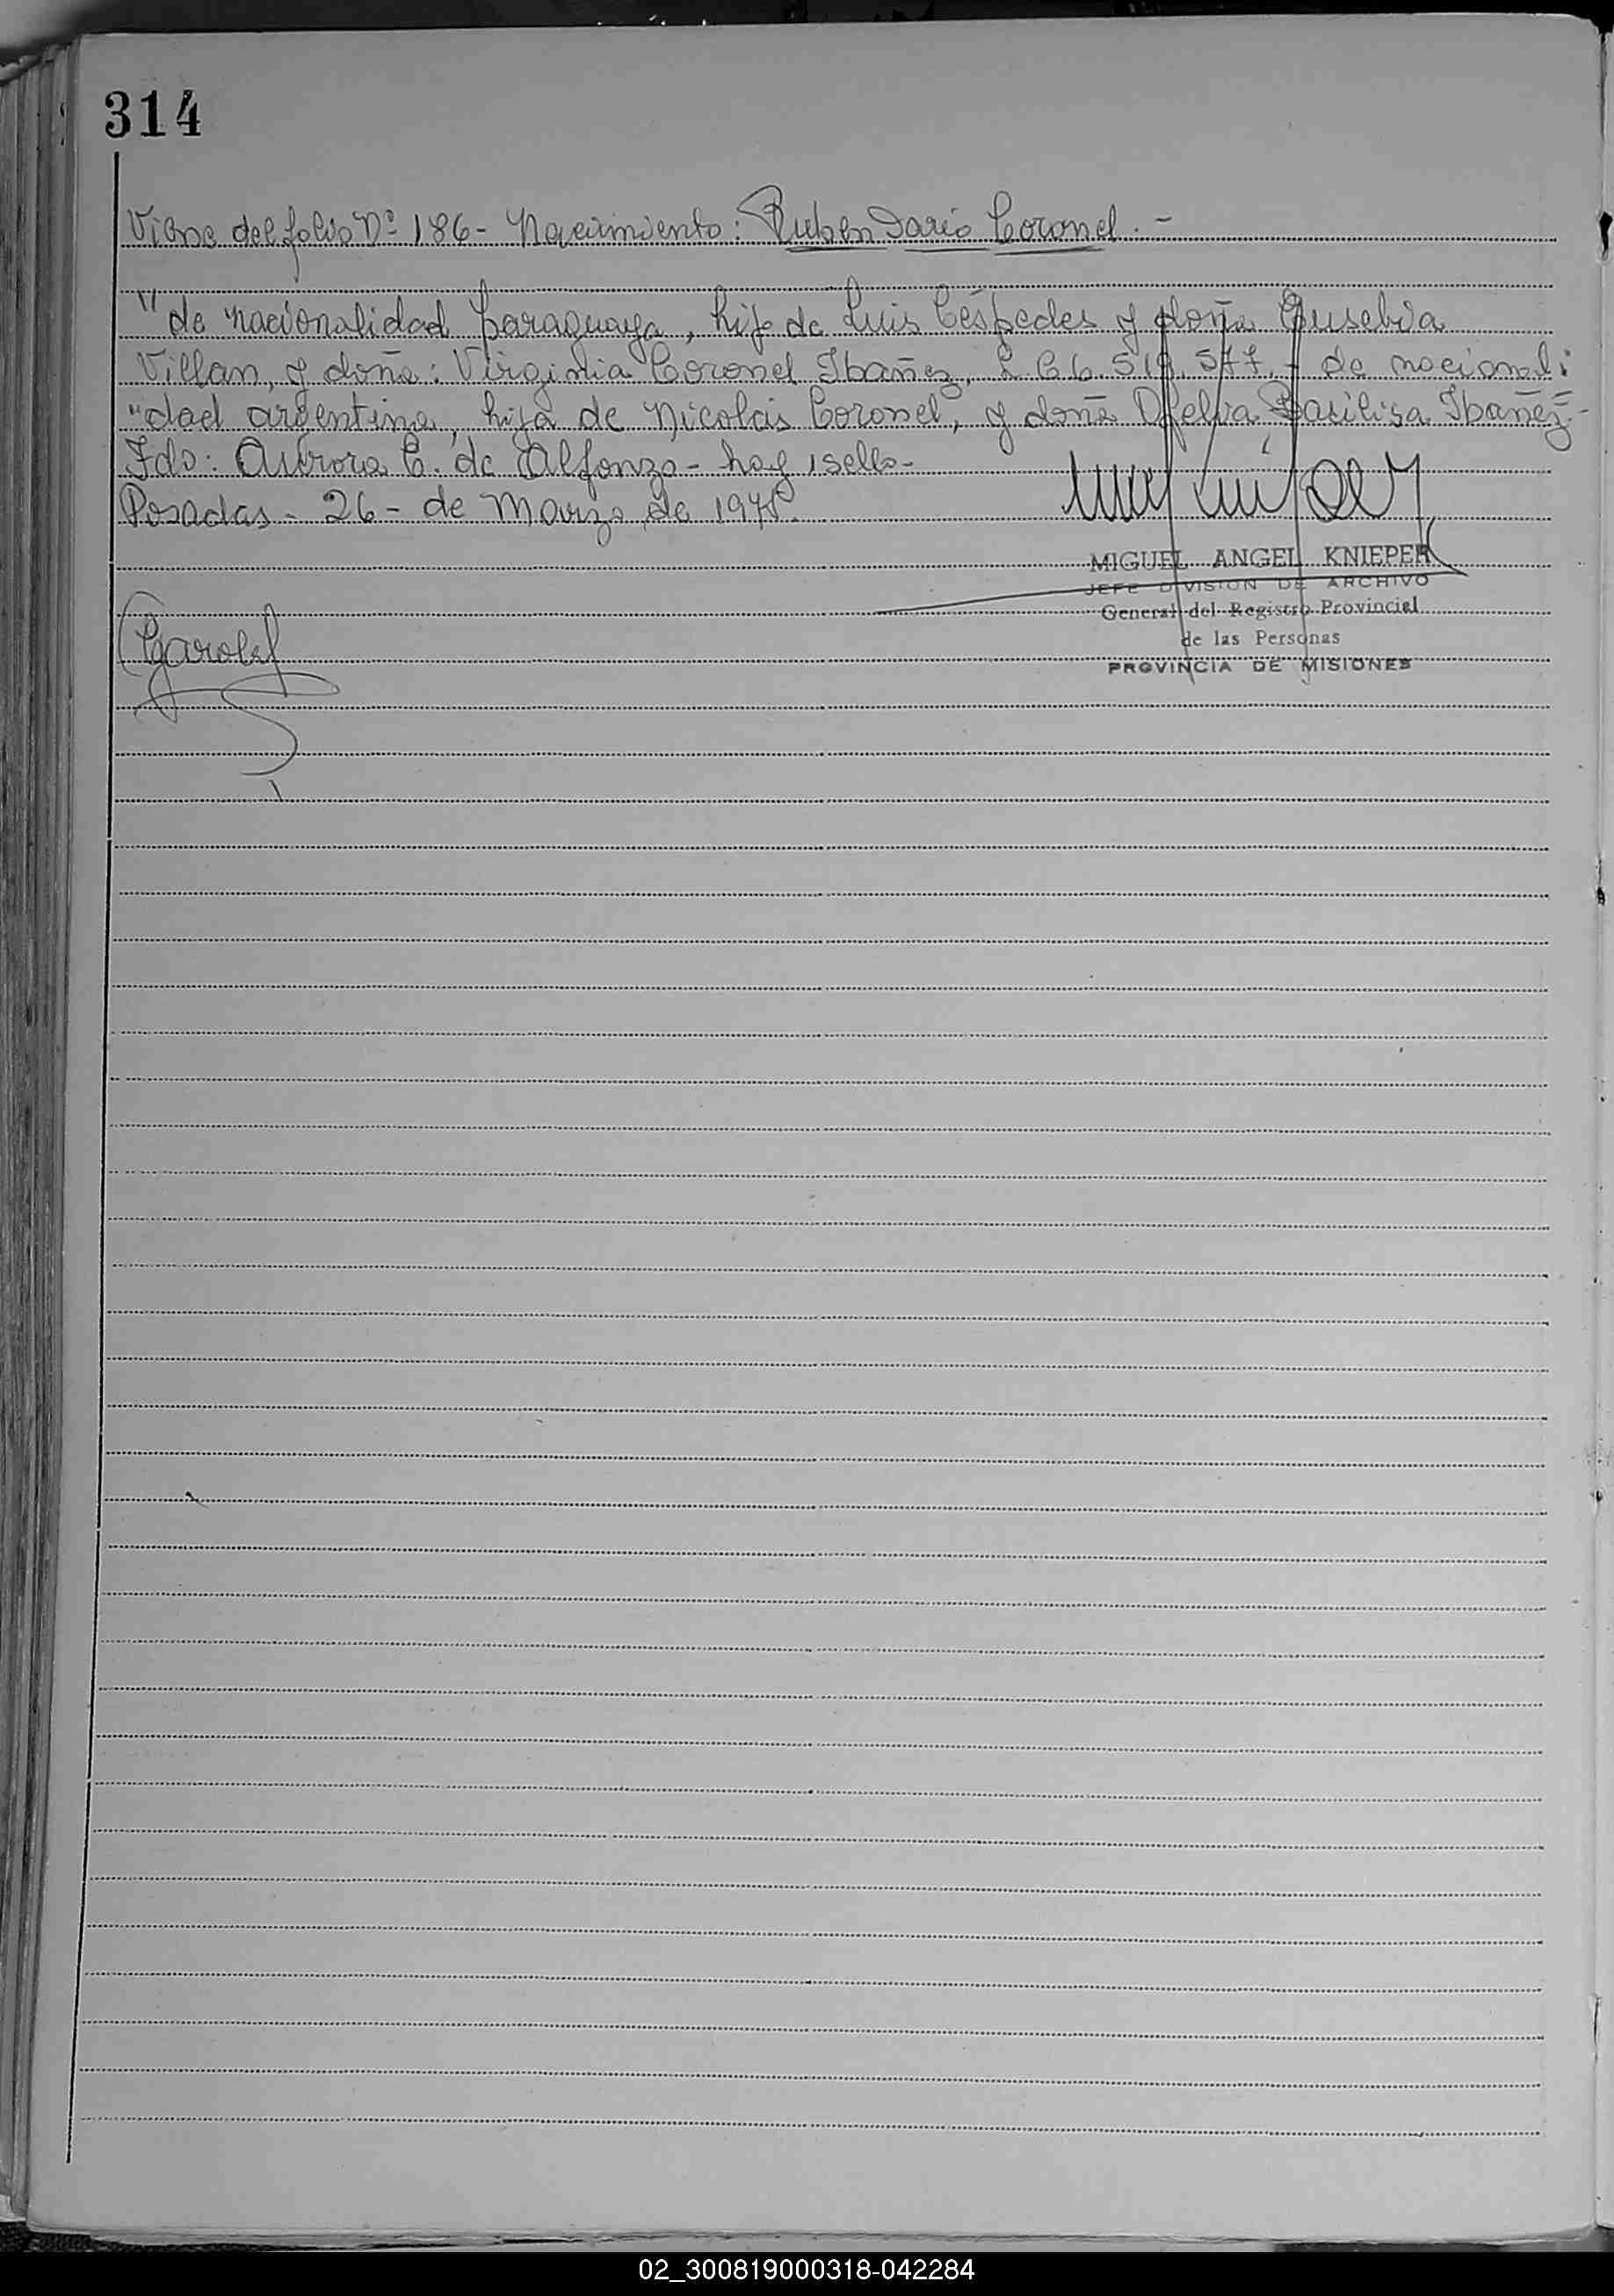 314
Viene del folio Nº 186 - Nacimiento: Ruben Dario Coronel. -
"de nacionalidad paraguaya, hijo de Luis Céspedes y doña Eusebia
Villan, y doña: Virginia Coronel Ibañez, L. C. 6. 519. 577. - de nacionali
"dad argentina, hija de Nicolás Coronel, y doña Ofelia Basilisa Ibañez -
Fdo: Aurora C. de Alfonzo - hay 1 sello -
Posadas - 26 - de Marzo de
MIGUEL ANGEL KNIEPER
JEFE DIVISION DE ARCHIVO
General del Registro Provincial
de las Personas
PROVINCIA DE MISIONES
02_300819000318-042284